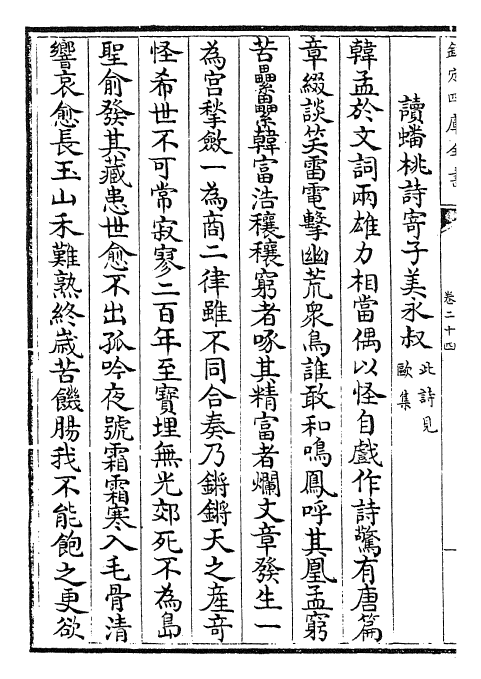 欽定四庫全書
卷二十四
讀蟠桃詩寄子美永叔
此詩見
歐集
韓孟於文詞兩雄力相當偶以怪自戲作詩驚有唐篇
章綴談笑雷電擊幽荒衆鳥誰敢和鳴鳳呼其凰孟窮
苦纍纍韓富浩穰穰窮者啄其精富者爛文章發生一
為宫揫斂一為商二律雖不同合奏乃鏘鏘天之産竒
怪希世不可常寂寥二百年至寶埋無光郊死不為島
聖俞發其藏患世愈不出孤吟夜號霜霜寒入毛骨清
響哀愈長玉山禾難熟終歳苦饑腸我不能飽之更欲